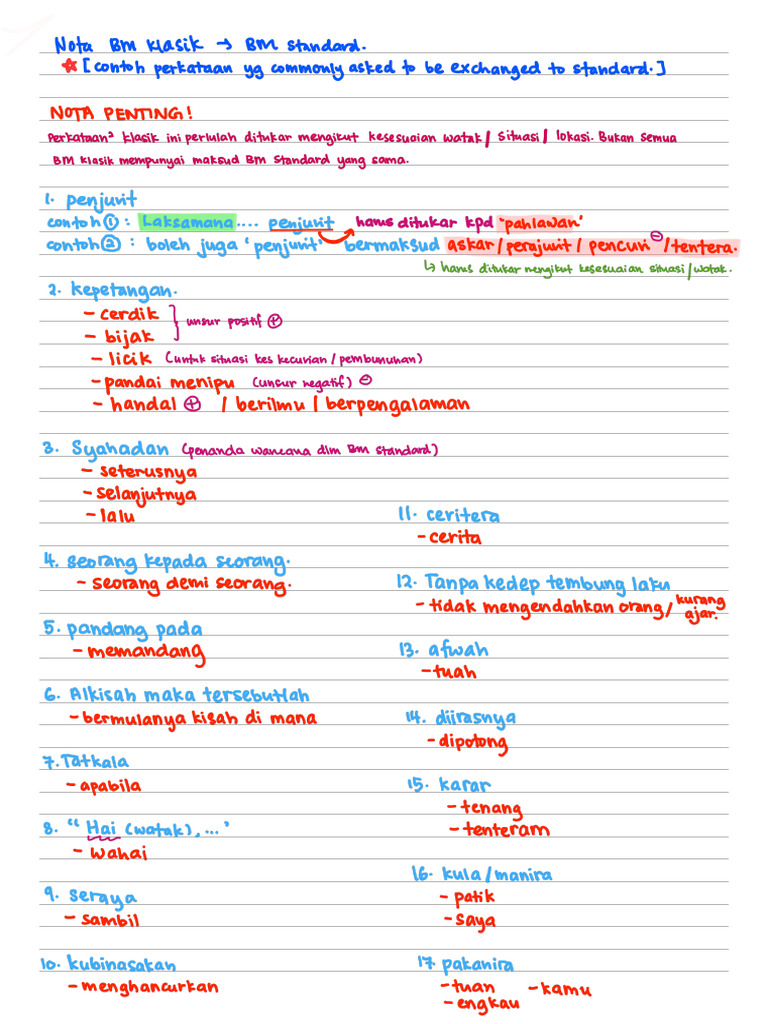 Nota BM klasik → BM standard.
☆ [contoh perkataan yg commonly asked to be exchanged to standard.]
NOTA PENTING!
Perkataan² klasik ini perlulah ditukar mengikut kesesuaian watak/ situasi/ lokasi. Bukan semua
BM klasik mempunyai maksud BM Standard yang sama.
1. penjurit
contoh ① : Laksamana.... penjurit harus ditukar kpd 'pahlawan'
contoh ② : boleh juga 'penjurit' bermaksud askar/perajurit/pencuri ⊖/tentera.
↳ harus ditukar mengikut kesesuaian situasi/watak.
2. kepetangan.
- cerdik
- bijak } unsur positif ⊕
- licik (untuk situasi kes kecurian/pembunuhan)
- pandai menipu (unsur negatif) ⊖
- handal ⊕ / berilmu / berpengalaman
3. Syahadan (penanda wancana dlm BM standard)
- seterusnya
- selanjutnya
- lalu
4. seorang kepada seorang.
- seorang demi seorang.
5. pandang pada
- memandang
6. Alkisah maka tersebutlah
- bermulanya kisah di mana
7. Tatkala
- apabila
8. "Hai (watak), ..."
- wahai
9. seraya
- sambil
10. kubinasakan
- menghancurkan
11. ceritera
- cerita
12. Tanpa kedep tembung laku
- tidak mengendahkan orang/ kurang
ajar.
13. afwah
- tuah
14. diirasnya
- dipotong
15. karar
- tenang
- tenteram
16. kula/manira
- patik
- saya
17. pakanira
- tuan - kamu
- engkau